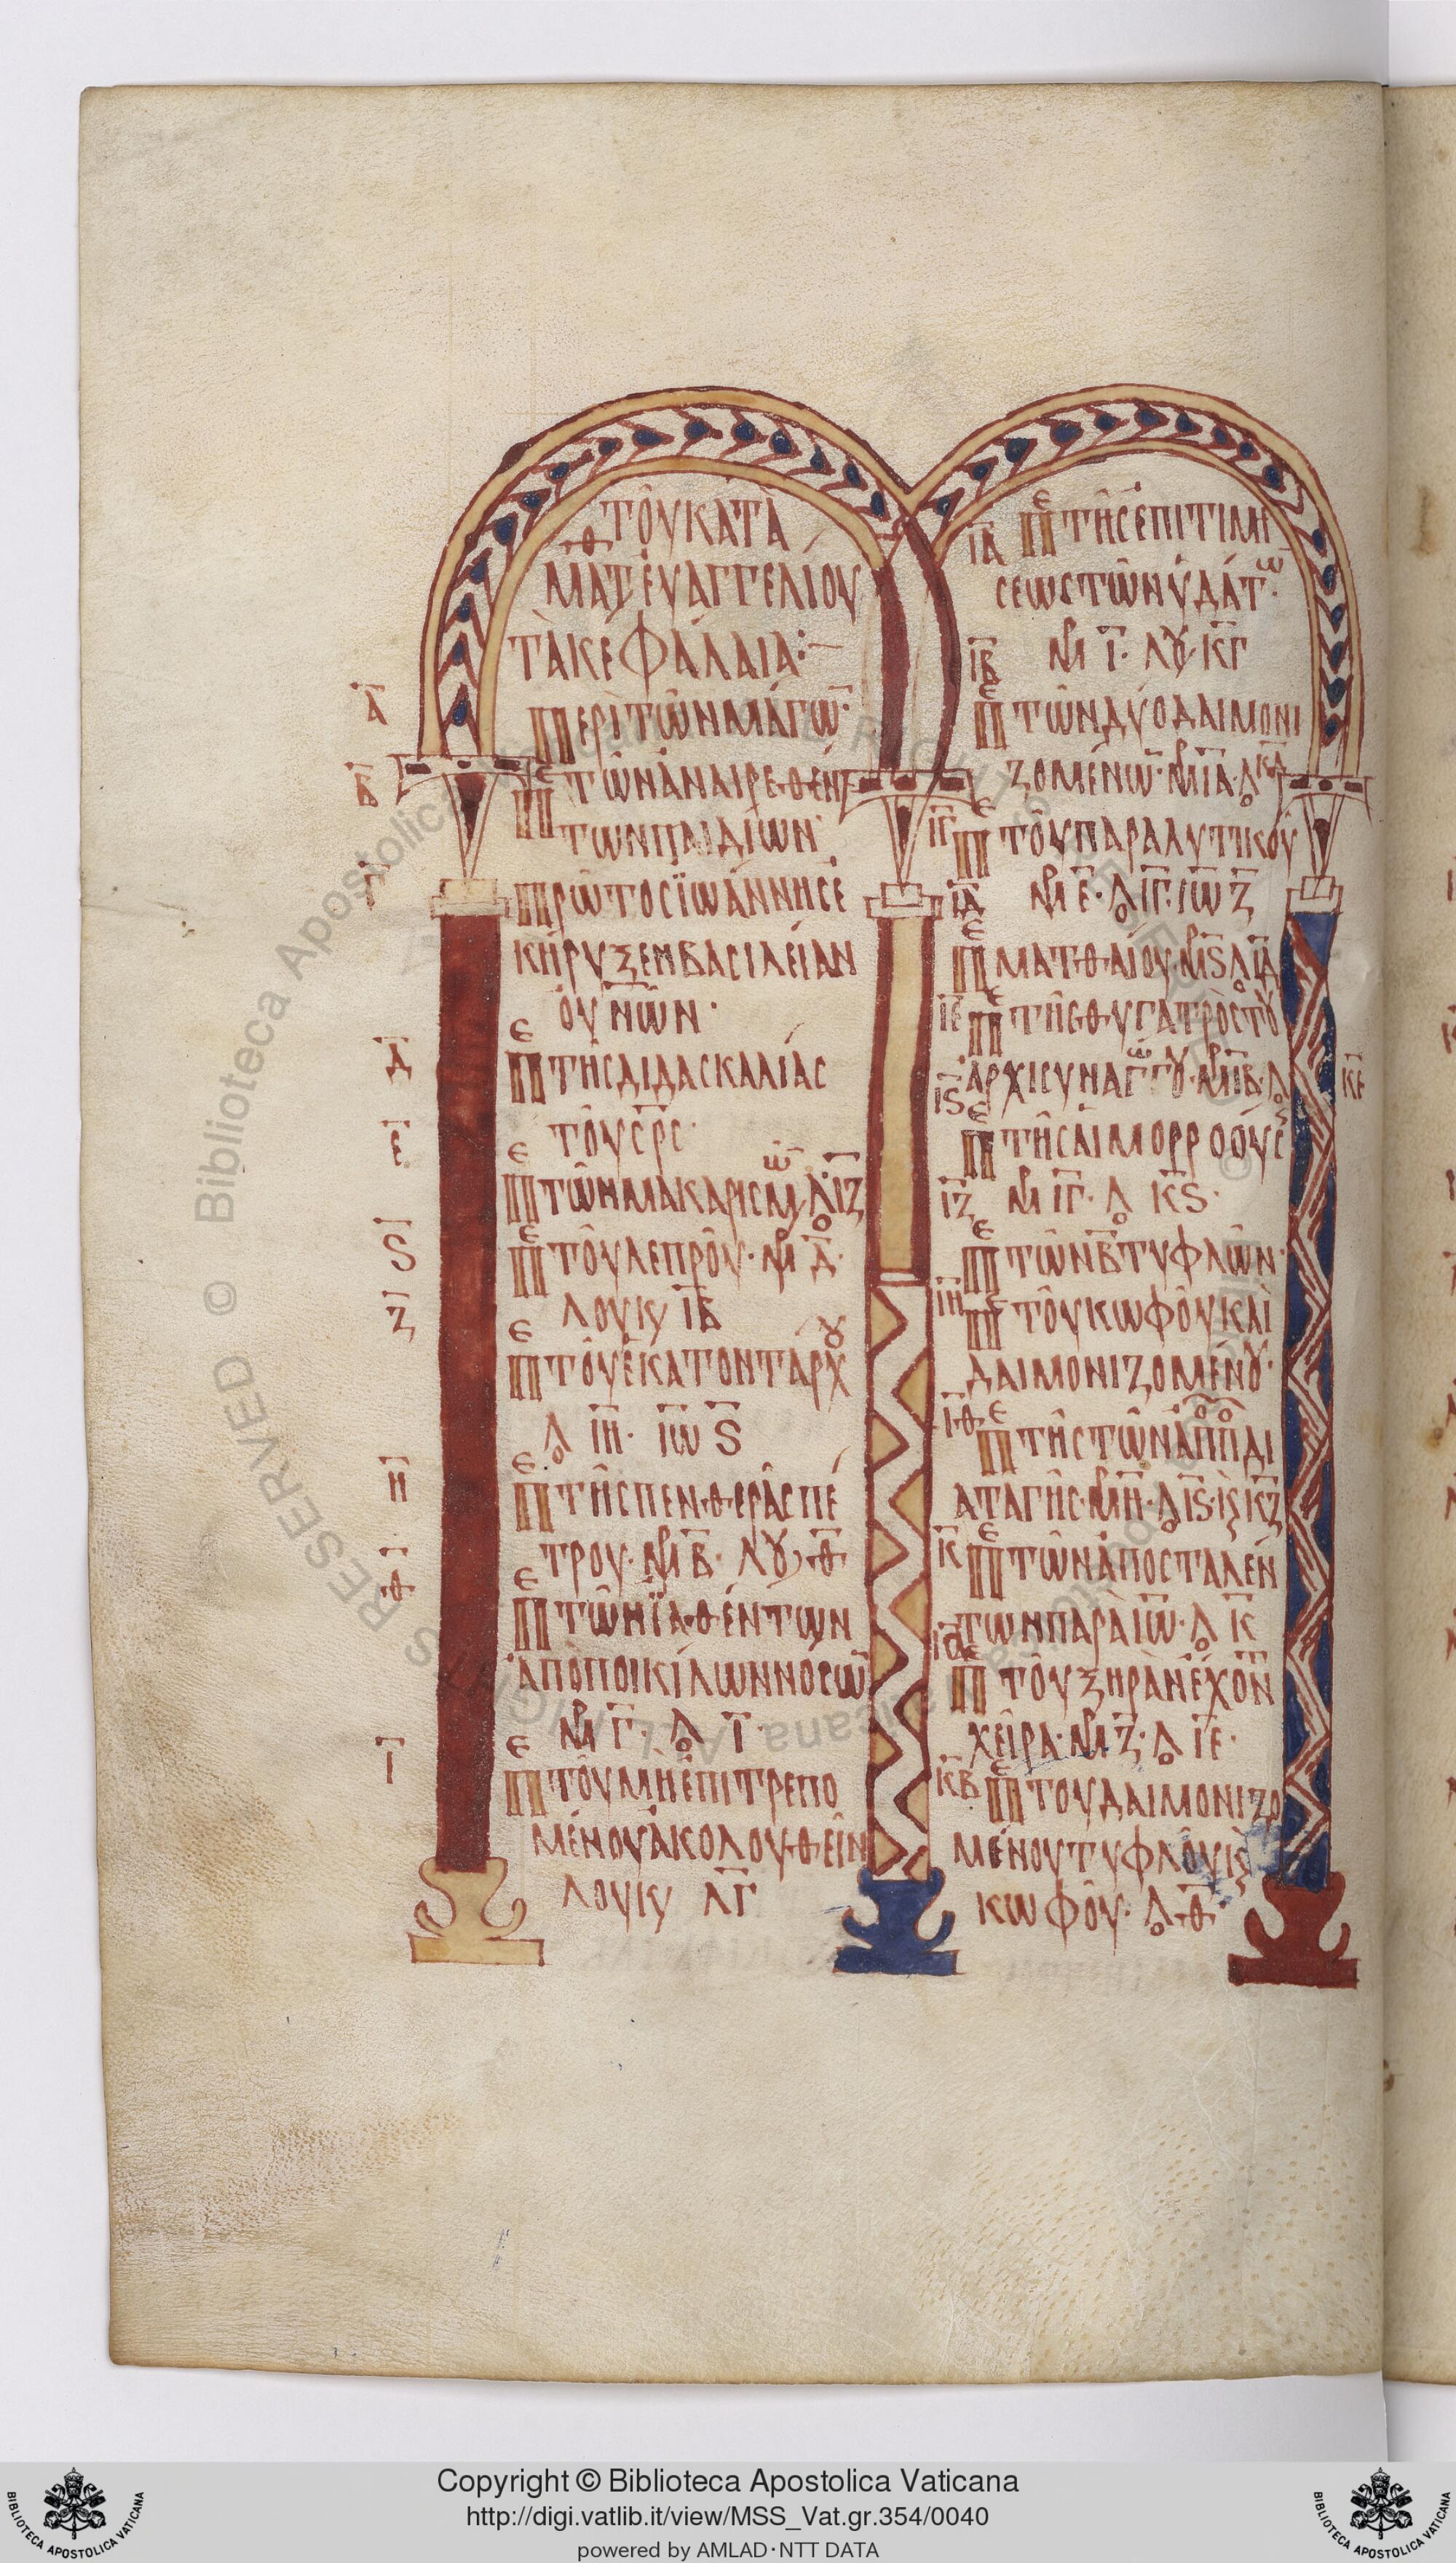 ΤΟΥ ΚΑΤΑ
ΜΑΤΘ ΕΥΑΓΓΕΛΙΟΥ
ΤΑ ΚΕΦΑΛΑΙΑ:–
Α ΠΕΡΙ ΤΩΝ ΜΑΓΩ·
Β ΠΕ ΤΩΝ ΑΝΑΙΡΕΘΕΝ
ΤΩΝ ΠΑΙΔΙΩΝ·
Γ ΠΡΩΤΟΣ ΪΩΑΝΝΗΣ Ε
ΚΗΡΥΞΕΝ ΒΑΣΙΛΕΙΑΝ
ΟΥΝΩΝ·
Δ ΠΕ ΤΗΣ ΔΙΔΑΣΚΑΛΙΑΣ
ΤΟΥ ΣΡΣ·
Ε ΠΕ ΤΩΝ ΜΑΚΑΡΙΣΜΩ Λο ΙΖ
Ϛ ΠΕ ΤΟΥ ΛΕΠΡΟΥ· ΜΡ Δ·
Ζ ΛΟΥΚ ΙΒ
ΠΕ ΤΟΥ ΕΚΑΤΟΝΤΑΡΧΟΥ
Λο ΙΗ· ΙΩ Ϛ
Η ΠΕ ΤΗΣ ΠΕΝΘΕΡΑΣ ΠΕ
ΤΡΟΥ· ΜΡ Β· ΛΟΥ Θ
Θ ΠΕ ΤΩΝ ΪΑΘΕΝΤΩΝ
ΑΠΟ ΠΟΙΚΙΛΩΝ ΝΟΣΩ
ΜΡ Γ· Λο Ι·
Ι ΠΕ ΤΟΥ ΜΗ ΕΠΙΤΡΕΠΟ
ΜΕΝΟΥ ΑΚΟΛΟΥΘΕΙΝ
ΛΟΥΚ ΛΓ
ΙΑ ΠΕ ΤΗΣ ΕΠΙΤΙΜΗ
ΣΕΩΣ ΤΩΝ ΥΔΑΤΩ·
ΙΒ ΜΡ Ι· ΛΟΥ ΚΓ
ΠΕ ΤΩΝ ΔΥΟ ΔΑΙΜΟΝΙ
ΖΟΜΕΝΩ· ΜΡ ΙΑ· Λο ΚΔ
ΙΓ ΠΕ ΤΟΥ ΠΑΡΑΛΥΤΙΚΟΥ
ΙΔ ΜΡ Ε· Λο ΙΓ· ΙΩ Ζ
ΠΕ ΜΑΤΘΑΙΟΥ ΜΡ Ϛ Λο ΙΔ
ΙΕ ΠΕ ΤΗΣ ΘΥΓΑΤΡΟΣ ΤΟΥ
ΑΡΧΙΣΥΝΑΓΩΓΟΥ· ΜΡ ΙΒ· Λο ΚΕ
ΙϚ ΠΕ ΤΗΣ ΑΙΜΟΡΡΟΟΥΣ
ΙΖ ΜΡ ΙΓ· Λο ΚϚ·
ΠΕ ΤΩΝ Β ΤΥΦΛΩΝ·
ΙΗ ΠΕ ΤΟΥ ΚΩΦΟΥ ΚΑΙ
ΔΑΙΜΟΝΙΖΟΜΕΝΟΥ·
ΙΘ ΠΕ ΤΗΣ ΤΩΝ ΑΠΟΠΟ ΔΙ
ΑΤΑΓΗΣ· ΜΡ Η· Λο ΙϚ· Ις ΚΖ
Κ ΠΕ ΤΩΝ ΑΠΟΣΤΑΛΕΝ
ΤΩΝ ΠΑΡΑ ΙΩ· Λο Κ
ΠΕ ΤΟΥ ΞΗΡΑΝ ΕΧΟΝ
ΧΕΙΡΑ· ΜΡ Ζ· Λο ΙΕ·
ΚΒ ΠΕ ΤΟΥ ΔΑΙΜΟΝΙΖΟ
ΜΕΝΟΥ ΤΥΦΛΟΥ Ις
ΚΩΦΟΥ· Λο Θ·
Copyright © Biblioteca Apostolica Vaticana
http://digi.vatlib.it/view/MSS_Vat.gr.354/0040
powered by AMLAD·NTT DATA
BIBLIOTECA APOSTOLICA VATICANA
BIBLIOTECA APOSTOLICA VATICANA